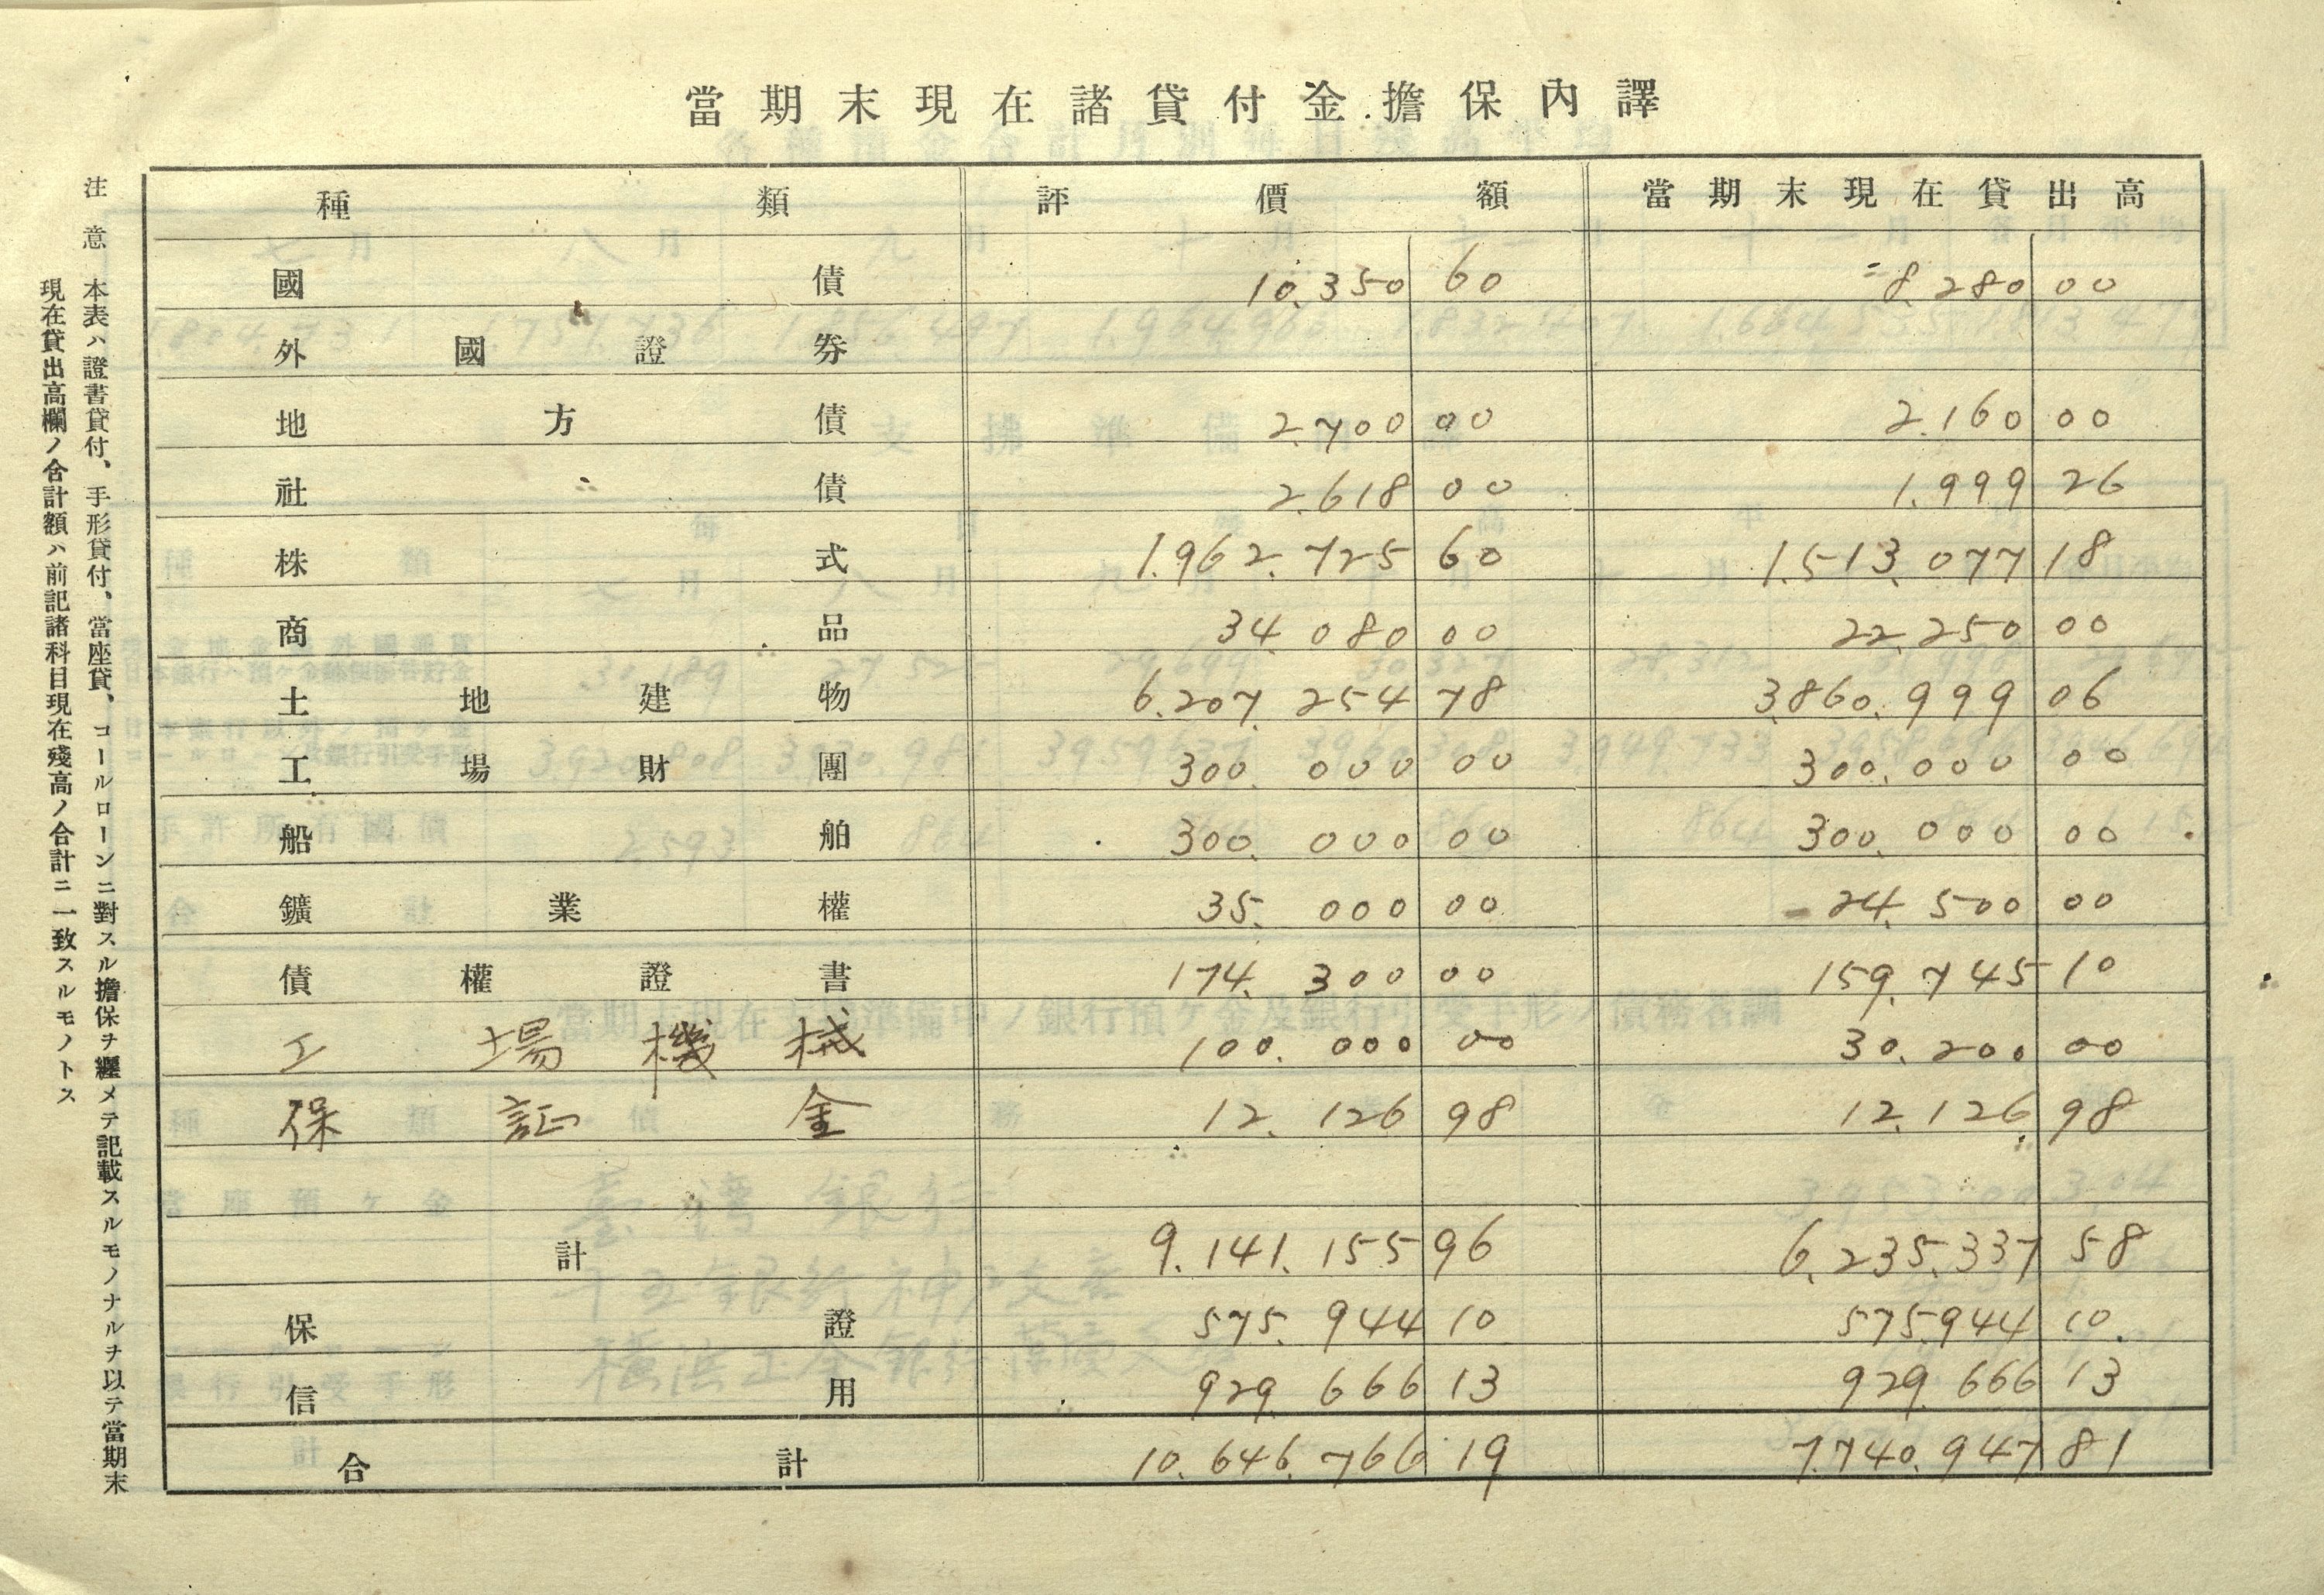 當期末現在諸貸付金擔保內譯
種類 評價額 當期末現在貸出高
國債 10.350 60 8.280 00
外國證券
地方債 2.700 00 2.160 00
社債 2.618 00 1.999 26
株式 1.962.725 60 1.513.077 18
商品 34.080 00 22.250 00
土地建物 6.207.254 78 3.860.999 06
工場財團 300.000 00 300.000 00
船舶 300.000 00 300.000 00
鑛業權 35.000 00 24.500 00
債權證書 174.300 00 159.745 10
工場機械 100.000 00 30.200 00
保証金 12.126 98 12.126 98
計 9.141.155 96 6.235.337 58
保證 575.944 10 575.944 10
信用 929.666 13 929.666 13
合計 10.646.766 19 7.740.947 81
注意 本表ハ證書貸付、手形貸付、當座貸、コールローンニ對スル擔保ヲ纒メテ記載スルモノナルヲ以テ當期末
現在貸出高欄ノ合計額ハ前記諸科目現在殘高ノ合計ニ一致スルモノトス